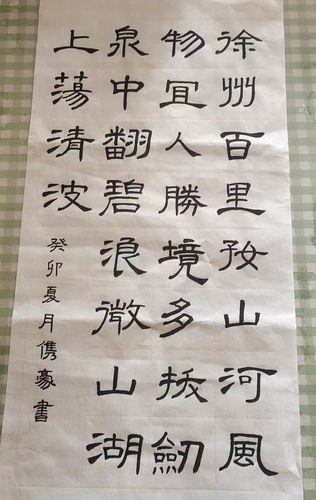 徐州百里好山河風
物冝人勝境多拔劒
泉中翻碧浪微山湖
上蕩清波
癸卯夏月儁豪書